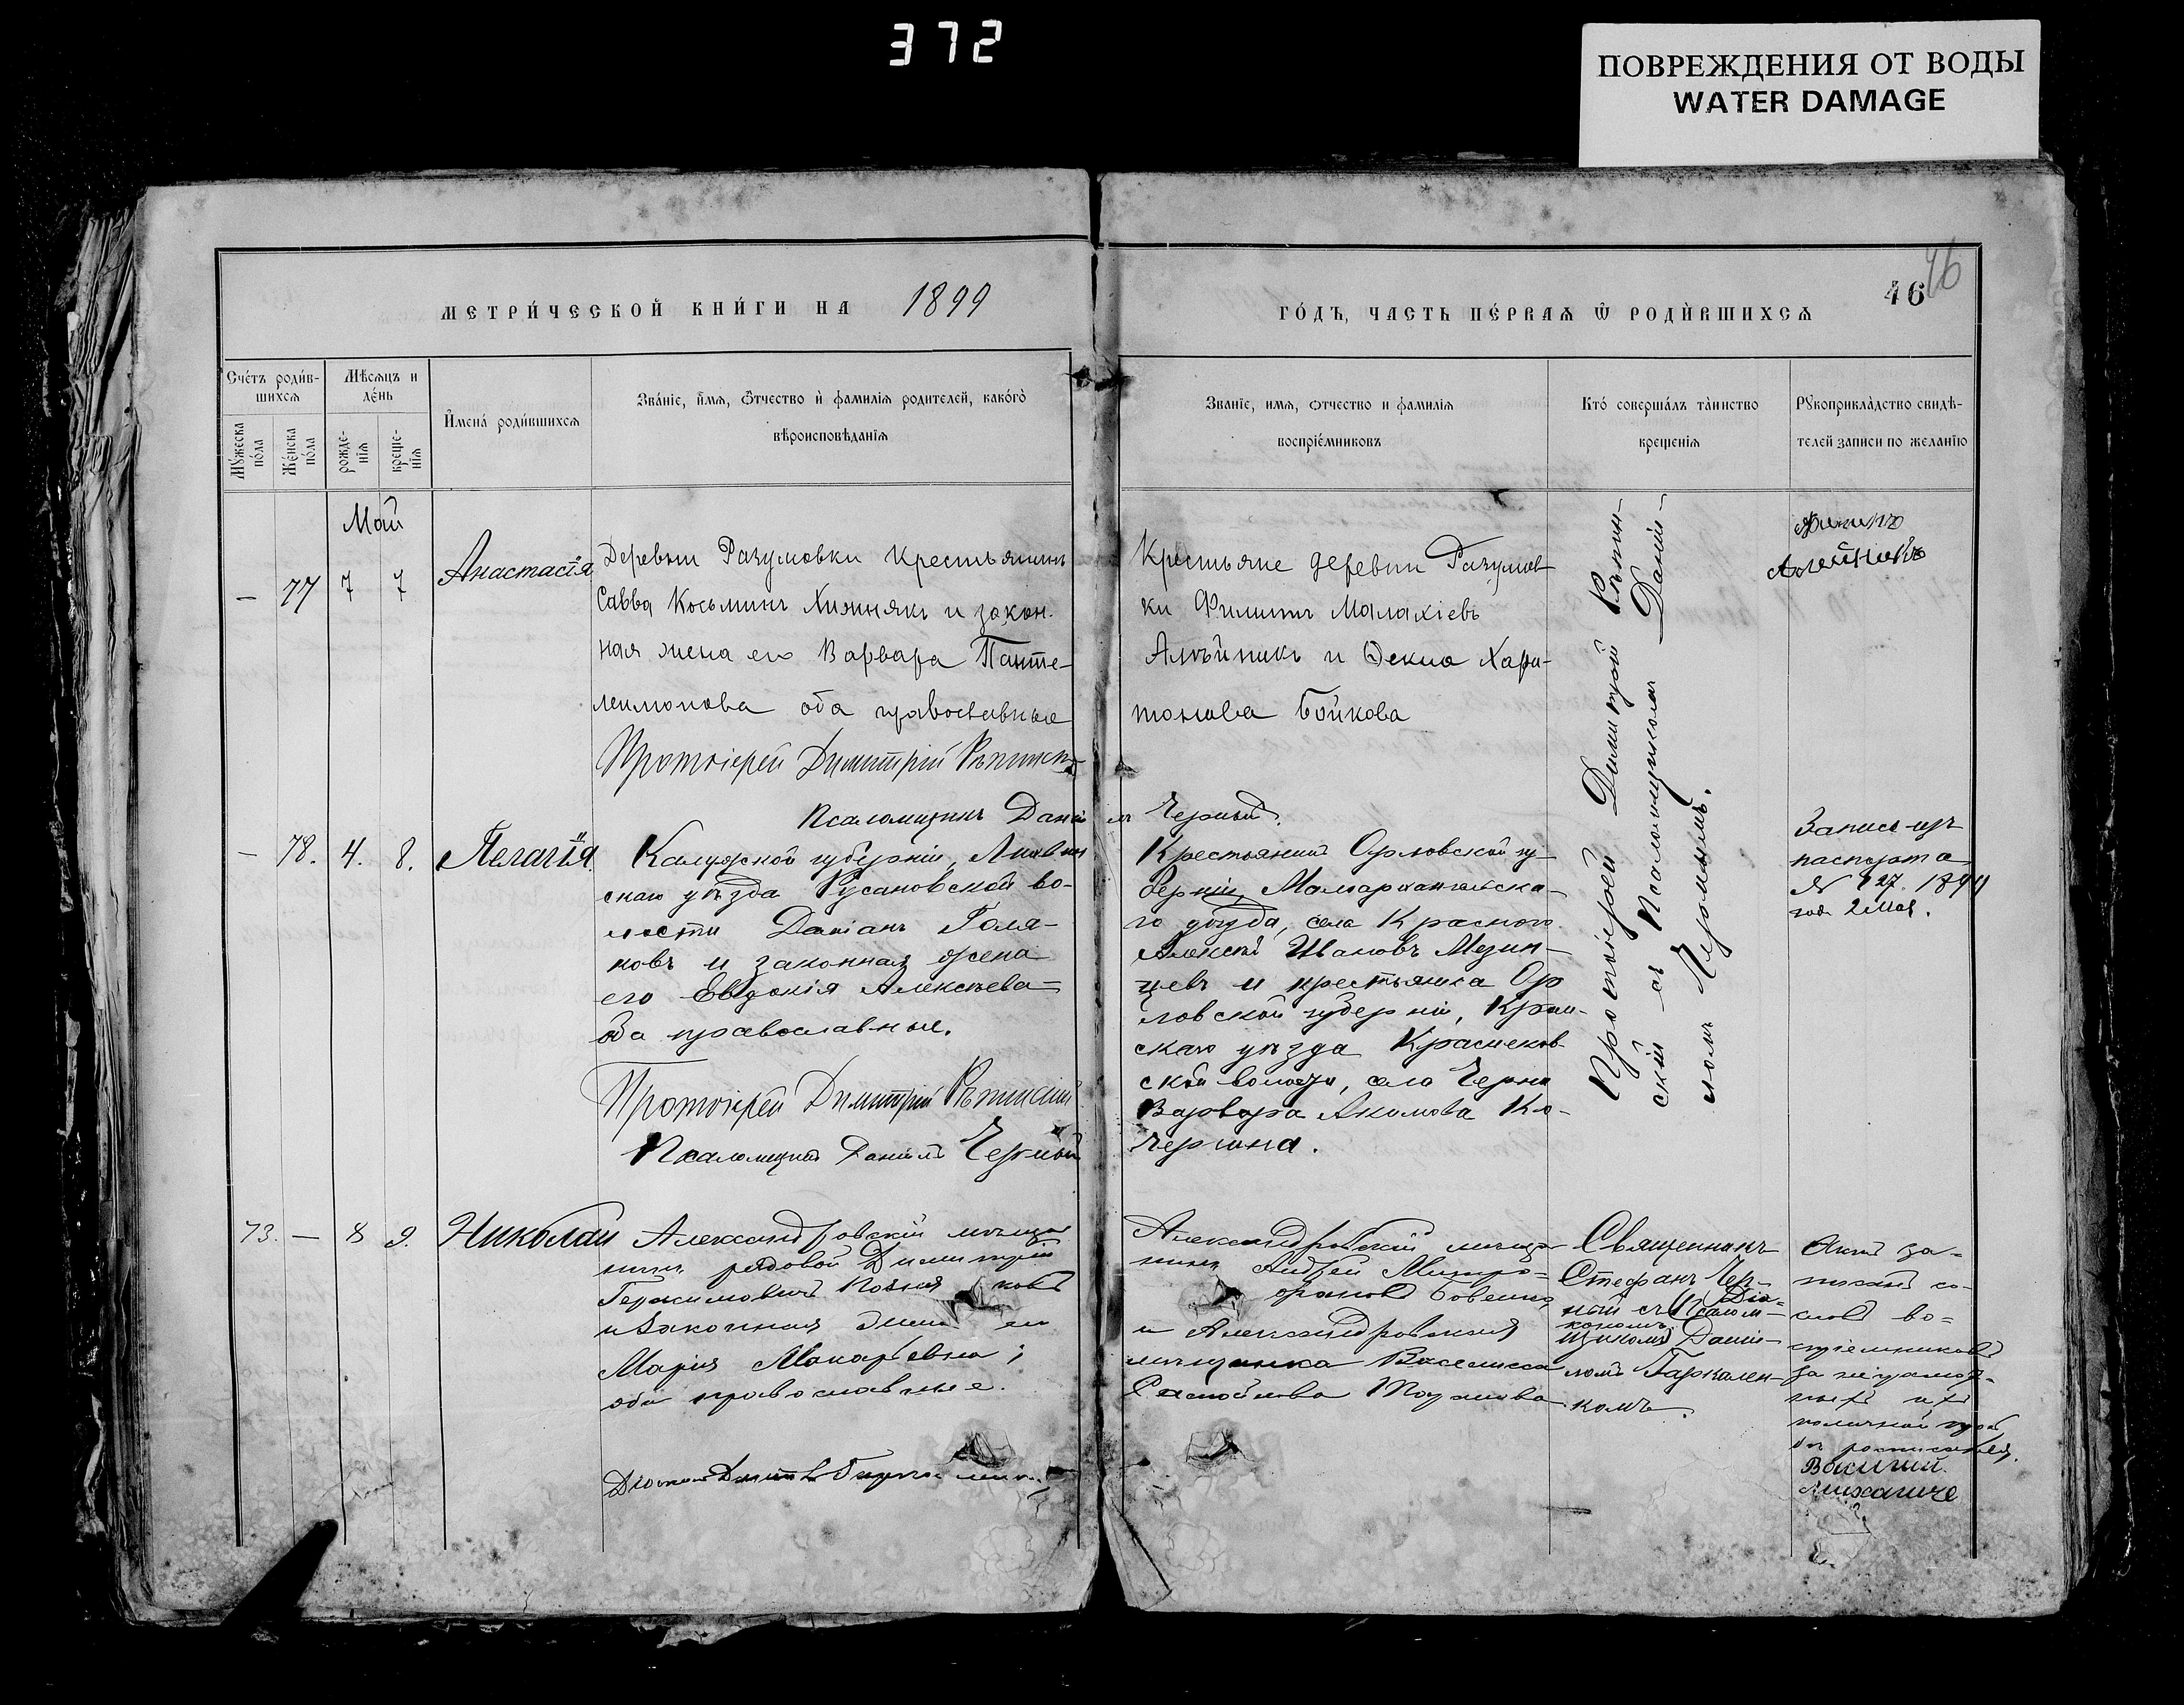 372
ПОВРЕЖДЕНИЯ ОТ ВОДЫ
WATER DAMAGE
МЕТРИ́ЧЕСКОЙ КНИ́ГИ НА 1899
ГО́ДЪ, ЧАСТЬ ПЕ́РВАѦ Ѿ РОДИ́ВШИХСѦ
46
46
Сче́тъ роди́в-
шихсѧ
Мꙋжеска
по́ла
Же́нска
по́ла
Мѣсѧцъ и
де́нь
рожде-
нїѧ
креще-
нїѧ
И҆мена̀ роди́вшихсѧ
Зва́нїе, и҆́мѧ, ѻ҆́тчество и҆ фамилїѧ родителей, како́гѡ
вѣроисповѣданїѧ
Званїе, имѧ, ѻтчество и фамилїѧ
воспрїе́мниковъ
Кто̀ соверша́лъ та́инство
крещенїѧ
Рꙋкоприкла́дство свидѣ-
телей записи по желанїю
Май
— 77 7 7 Анастасія
Деревни Разумовки крестьянинъ
Савва Косьминъ Хижнякъ и закон-
ная жена его Варвара Панте-
леимонова оба православные
Протоіерей Димитрій Рѣпинскій
Псаломщикъ Даніилъ Черный.
Крестьяне деревни Разумов-
ки Филиппъ Малахіевъ
Алѣйникъ и Ѳекла Хари-
тонова Бойкова
Протоіерей Димитрій Рѣпин-
скій съ Псаломщикомъ Даніи-
ломъ Чернымъ.
Филипъ
Алейникъ
— 78. 4. 8. Пелагія
Калужской губерніи, Лихвин
скаго уѣзда Русановской во-
лости Даміанъ Голя-
ковъ и законная жена
его Евдокія Алексѣева
оба православные.
Протоіерей Димитрій Рѣпинскій
Псаломщикъ Даніилъ Черный
Крестьянинъ Орловской гу-
берніи, Малоархангельска-
го уѣзда, села Краснаго
Алексѣй Ивановъ Мезин-
цевъ и крестьянка Ор
ловской губерніи, Кром-
скаго уѣзда
ской волости, село Черни
Варвара Акимова Ко-
чергина.
Запись изъ
паспорта
№ 127. 1899
год. 2 мая.
73. — 8 9. Николай
Александровскій мѣща
нинъ рядовой Димитрій
Герасимовичъ
и законная жена его
Марія Макарьевна;
оба православные.
Александровскій мѣща-
нинъ Андрей Митро-
фановъ
и Александровская
мѣщанка Василисса
Священникъ
Стефанъ Чер-
ный съ Діа-
кономъ
Псалом-
щикомъ Дани-
ломъ Гаркален-
комъ.
Актъ за-
писанъ со
словъ во-
спріемниковъ
за неграмот-
ныхъ ихъ
Василий